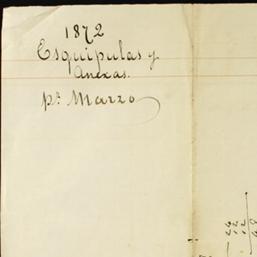 1872
Esquipulas y
Anexas.
pa. Marzo